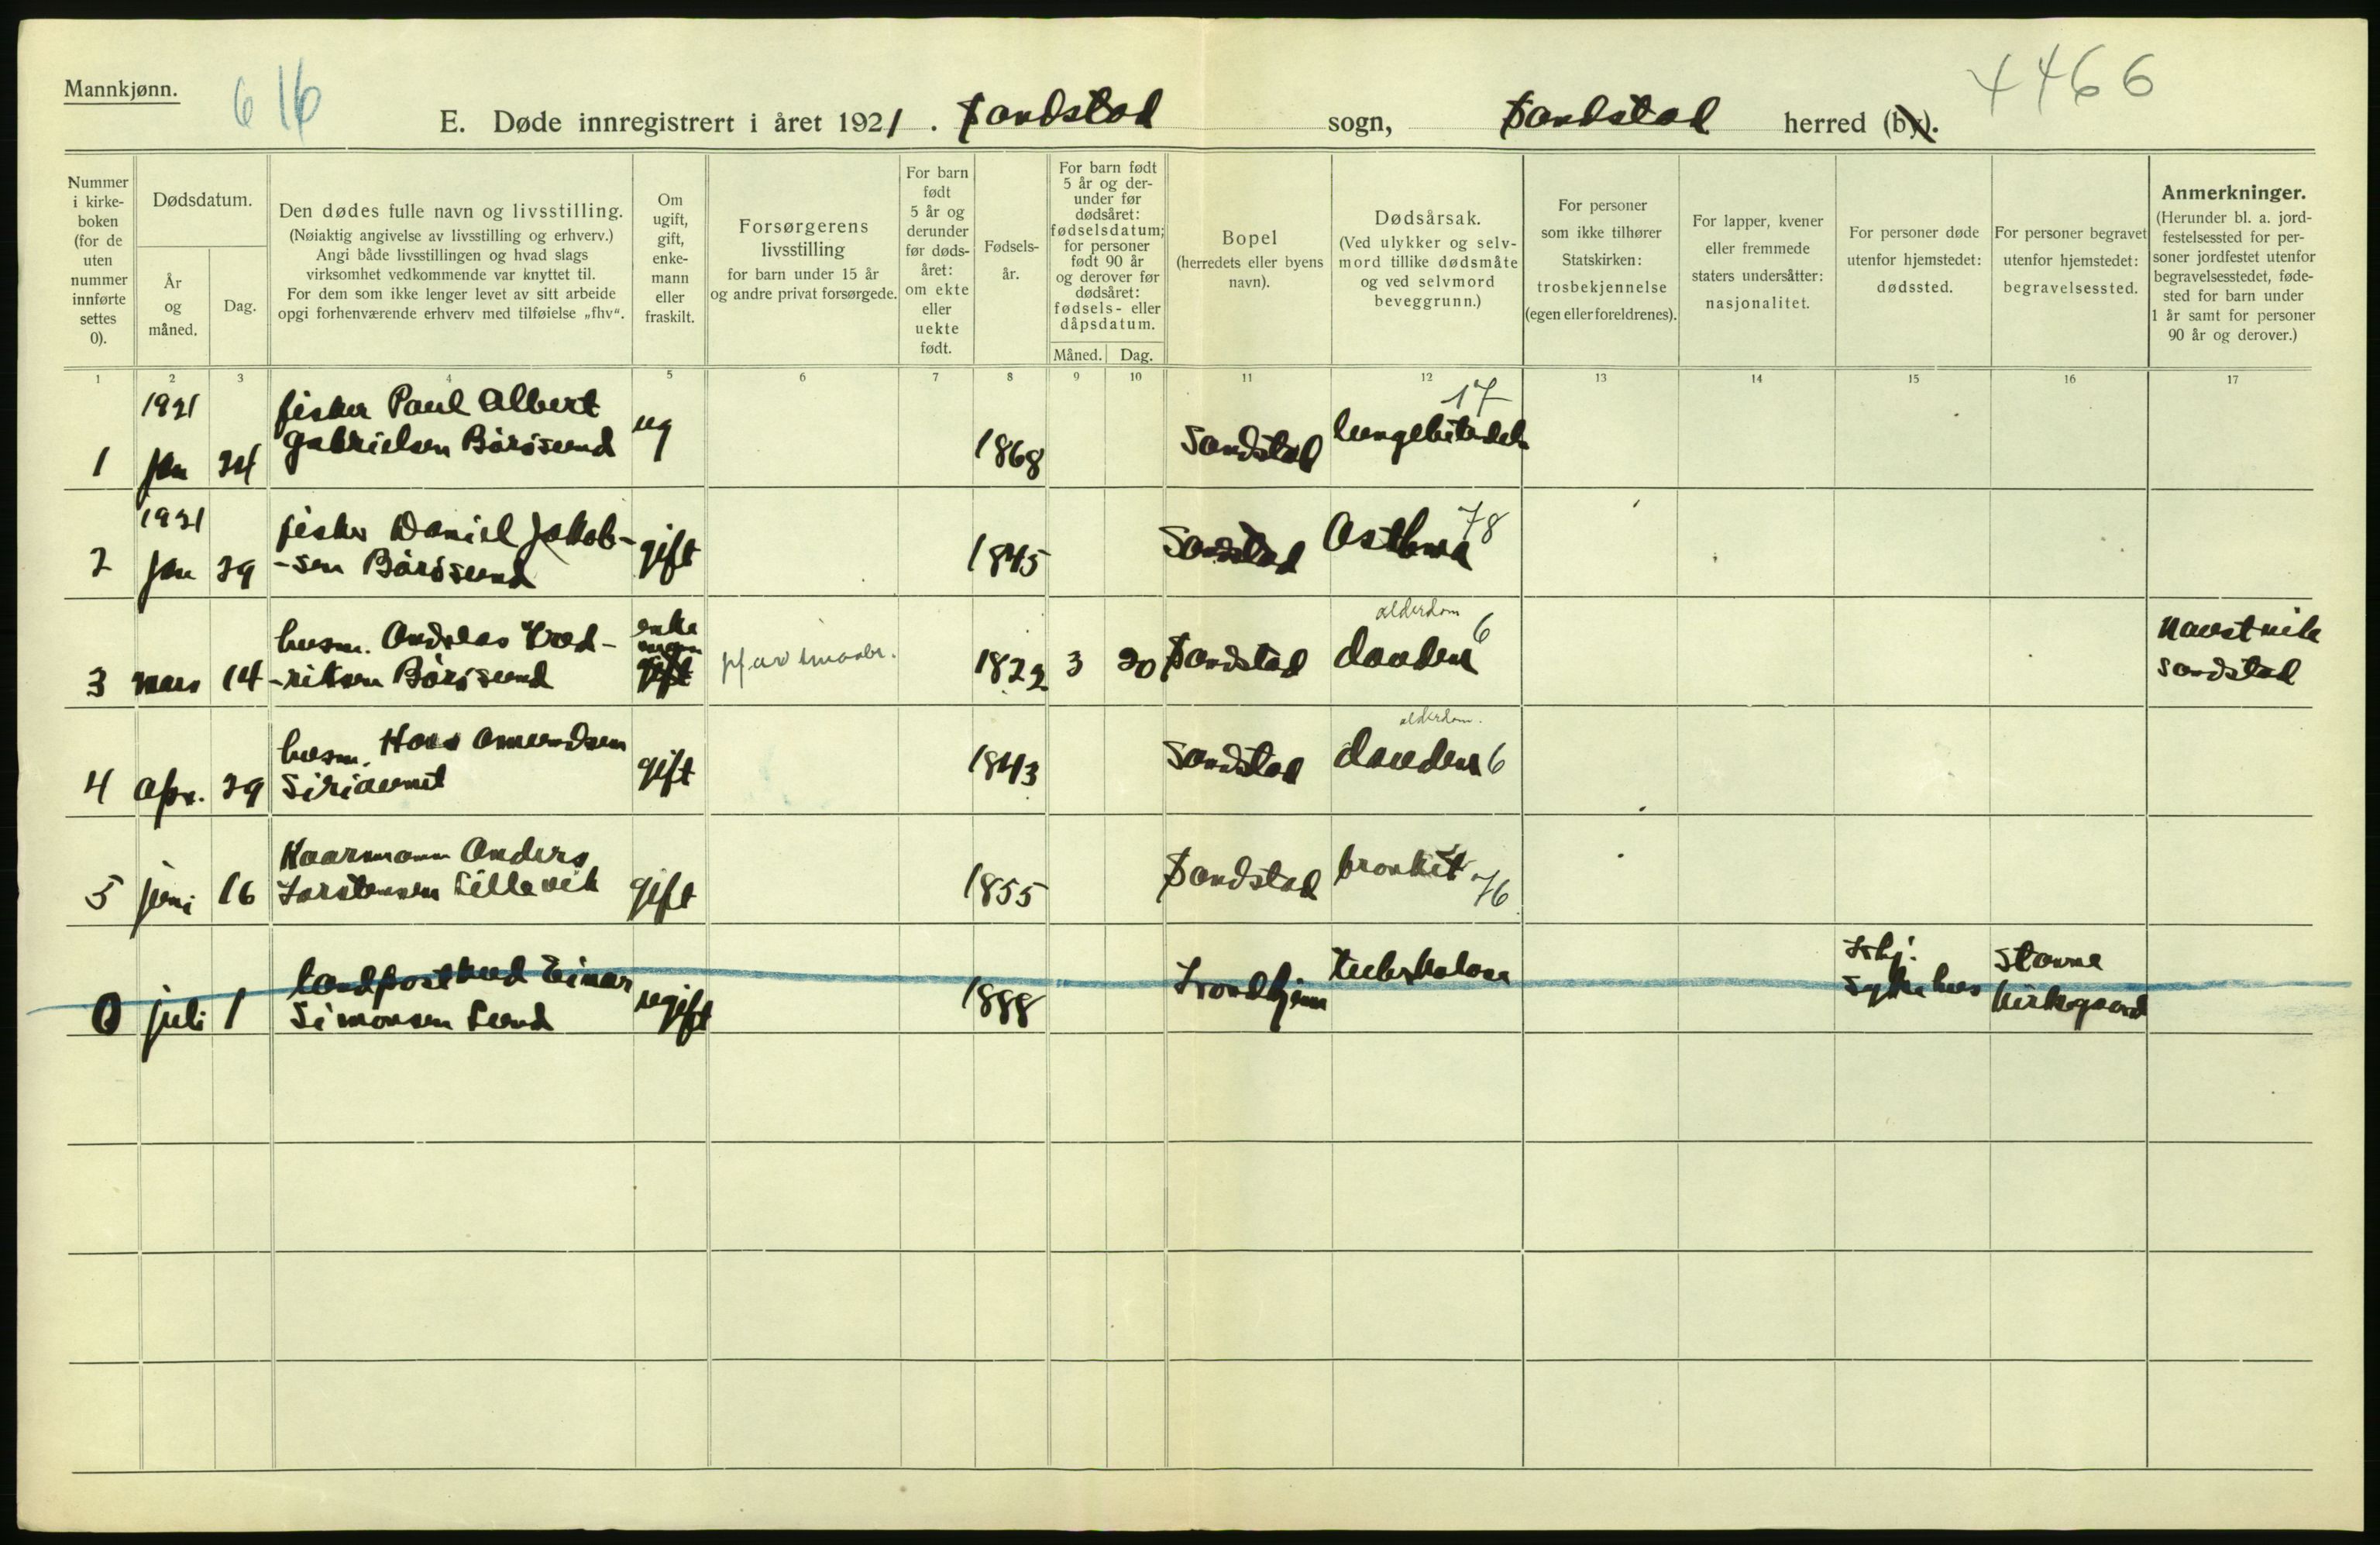 Mannkjønn.
6 16
4466
E. Døde innregistrert i året 1921. Sandstad sogn, Sandstad herred (by).
Nummer i kirke-boken (for de uten nummer innførte settes 0).
Dødsdatum.
År og måned.
Dag.
Den dødes fulle navn og livsstilling.
(Nøiaktig angivelse av livsstilling og erhverv.)
Angi både livsstillingen og hvad slags
virksomhet vedkommende var knyttet til.
For dem som ikke lenger levet av sitt arbeide
opgi forhenværende erhverv med tilføielse „fhv“.
Om ugift, gift, enke-mann eller fraskilt.
Forsørgerens livsstilling
for barn under 15 år
og andre privat forsørgede.
For barn født 5 år og derunder før døds-året: om ekte eller uekte født.
Fødsels-år.
For barn født 5 år og der-under før dødsåret: fødselsdatum; for personer født 90 år og derover før dødsåret: fødsels- eller dåpsdatum.
Måned. Dag.
Bopel
(herredets eller byens navn).
Dødsårsak.
(Ved ulykker og selv-mord tillike dødsmåte og ved selvmord beveggrunn.)
For personer som ikke tilhører Statskirken: trosbekjennelse (egen eller foreldrenes).
For lapper, kvener eller fremmede staters undersåtter: nasjonalitet.
For personer døde utenfor hjemstedet: dødssted.
For personer begravet utenfor hjemstedet: begravelsessted.
Anmerkninger.
(Herunder bl. a. jord-festelsessted for per-soner jordfestet utenfor begravelsesstedet, føde-sted for barn under 1 år samt for personer 90 år og derover.)
1 2 3 4 5 6 7 8 9 10 11 12 13 14 15 16 17
1 1921 jan 24 fisker Paul Albert Gabrielsen Børøsund ug 1868 Sandstad lungebetendels 17
2 1921 jan 29 fisker Daniel Jakob-sen Børøsund gift 1845 Sandstad Asthma 78
3 mars 14 husm. Andreas Fred-riksen Børøsund enke gift 1822 3 20 Sandstad alderdom 6 Sandstad
4 apr. 29 husm. Hans Amundsen gift 1843 Sandstad alderdom. 6
5 juni 16 Kaarmann Anders Torstensen Lillevik gift 1855 Sandstad bronkit 76
0 juli 1 landpostbud Einar Simonsen Lund ugift 1888 Trondhjem tuberkulose Trhj. Sykehus Stavne kirkegaard